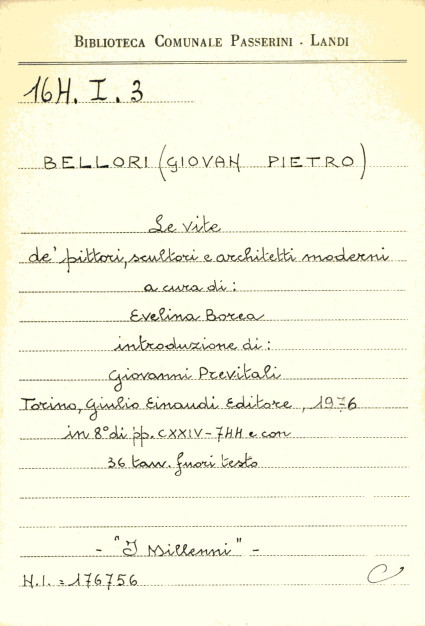 BIBLIOTECA COMUNALE PASSERINI - LANDI
164. I. 3
BELLORI (GIOVAN PIETRO)
Le vite
de' pittori, scultori e architetti moderni
a cura di :
Evelina Borea
introduzione di :
Giovanni Previtali
Torino, Giulio Einaudi Editore, 1976
in 8° di pp. CXXIV-744 e con
36 tav. fuori testo
- "I Millenni" -
N.I. = 176756
C